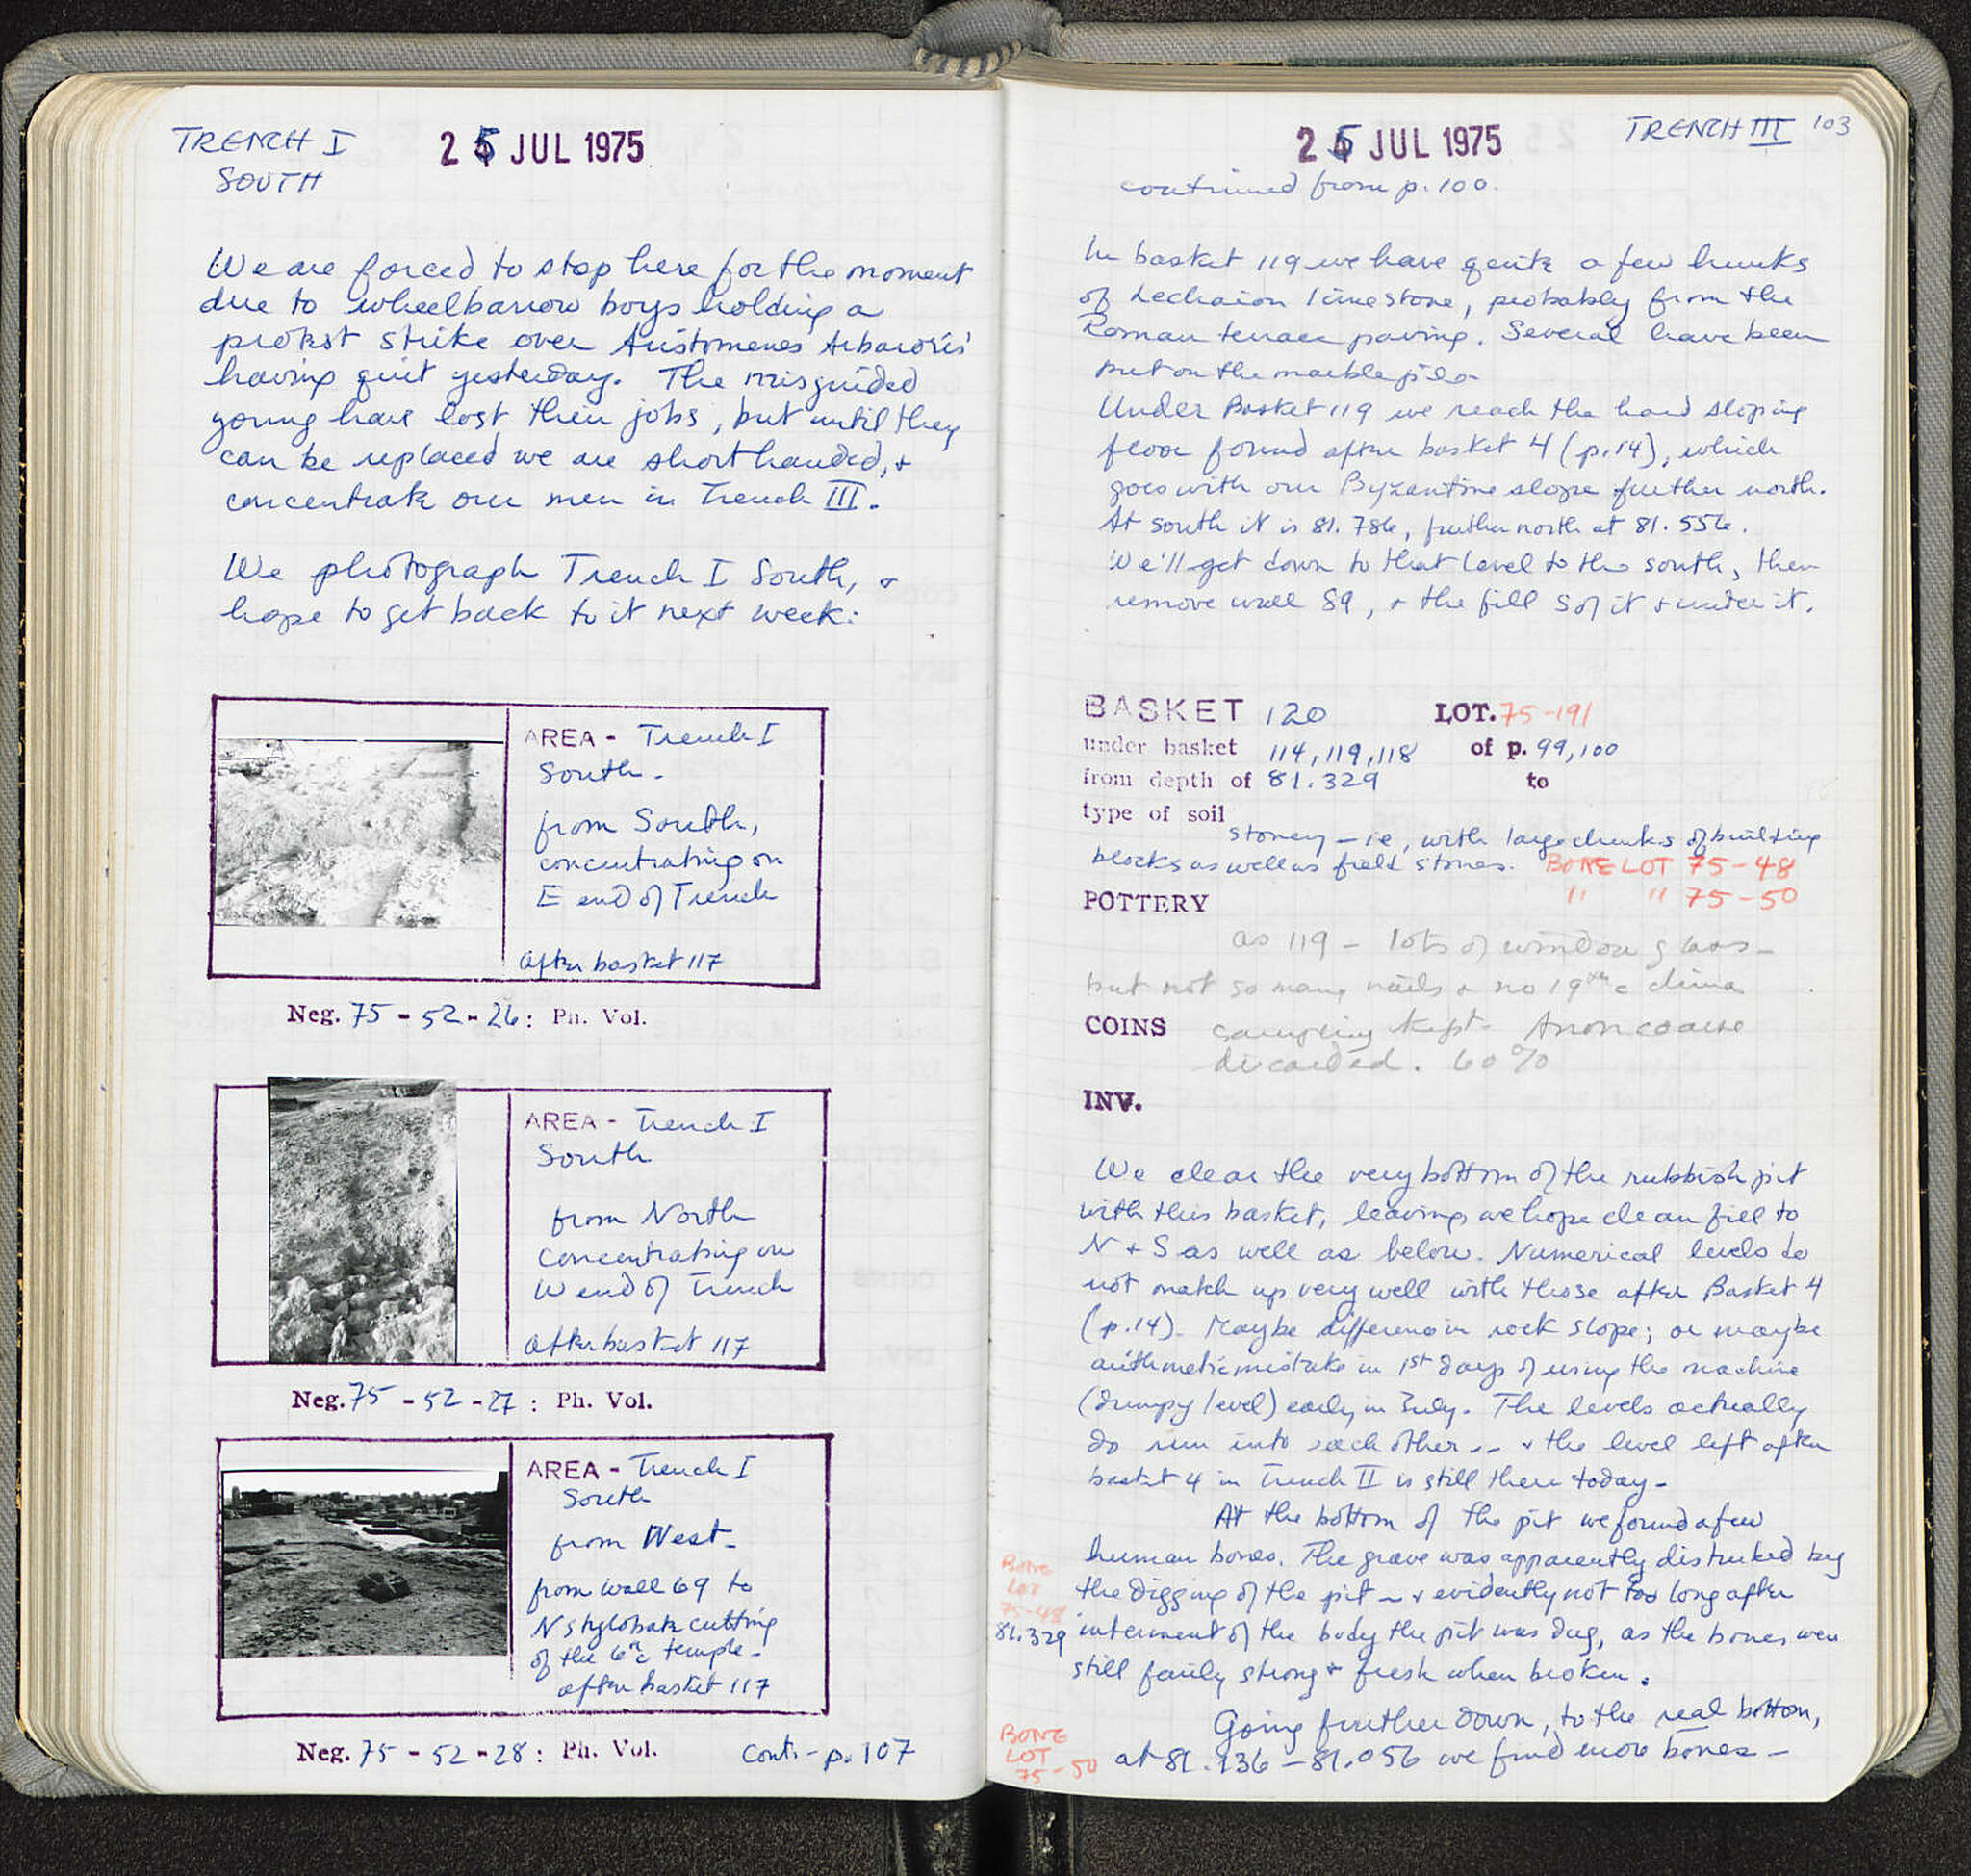 TRENCH I
SOUTH
25 JUL 1975
We are forced to stop here for the moment
due to wheelbarrow boys holding a
protest strike over Aristomenes Arbaroris'
having quit yesterday. The misguided
young have lost their jobs, but until they
can be replaced we are shorthanded, +
concentrate our men in Trench III.
We photograph Trench I South, +
hope to get back to it next week:
AREA - Trench I
South -
from South,
concentrating on
E end of Trench
after basket 117
Neg. 75 - 52 - 26 : Ph. Vol.
AREA - Trench I
South
from North
concentrating on
W end of Trench
after basket 117
Neg. 75 - 52 - 27 : Ph. Vol.
AREA - Trench I
South
from West -
from wall 69 to
N stylobate cutting
of the 6th c temple -
after basket 117
Neg. 75 - 52 - 28 : Ph. Vol.
Cont. - p. 107
25 JUL 1975
TRENCH III 103
continued from p. 100.
In basket 119 we have quite a few hunks
of Lechaion limestone, probably from the
Roman terrace paving. Several have been
put on the marble pile.
Under Basket 119 we reach the hard sloping
floor found after basket 4 (p.14), which
goes with our Byzantine slope further north.
At south it is 81.786, further north at 81.556.
We'll get down to that level to the south, then
remove wall 89, + the fill S of it + under it.
BASKET 120 LOT. 75-191
under basket 114, 119, 118 of p. 99, 100
from depth of 81.329 to
type of soil
stoney - ie, with large chunks of building
blocks as well as field stones. BONE LOT 75-48
" " 75-50
POTTERY
as 119 - lots of window glass -
but not so many nails + no 19th c china
COINS sampling kept. Anon coarse
discarded. 60%
INV.
We clear the very bottom of the rubbish pit
with this basket, leaving we hope clean fill to
N + S as well as below. Numerical levels do
not match up very well with those after Basket 4
(p.14). Maybe difference in rock slope; or maybe
arithmetic mistake in 1st days of using the machine
(dumpy level) early in July. The levels actually
do run into each other -- + the level left after
basket 4 in Trench II is still there today -
At the bottom of the pit we found a few
human bones. The grave was apparently disturbed by
the digging of the pit - + evidently not too long after
interment of the body the pit was dug, as the bones were
still fairly strong + fresh when broken.
BONE
LOT
75-48
81.329
Going further down, to the real bottom,
at 81.136 - 81.056 we find more bones -
BONE
LOT
75-50